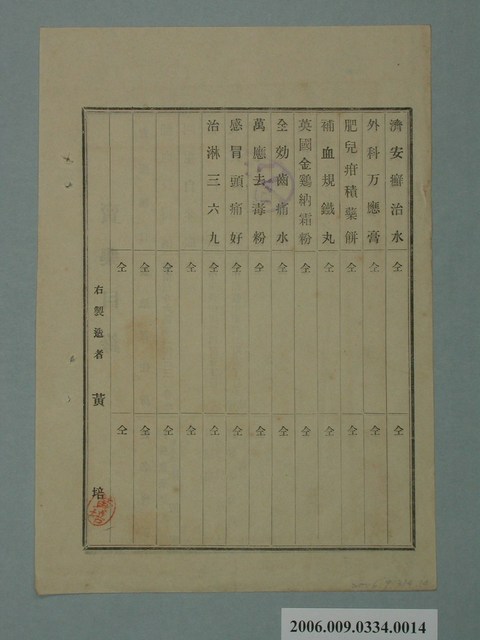 濟安癬治水 仝 仝
外科万應膏 仝 仝
肥兒疳積藥餅 仝 仝
補血規鐵丸 仝 仝
英國金鷄納霜粉 仝 仝
仝効齒痛水 仝 仝
萬應去毒粉 仝 仝
感冒頭痛好 仝 仝
治淋三六九 仝 仝
仝 仝
仝 仝
仝 仝
仝 仝
右製造者 黃 培
2006.009.0334.0014